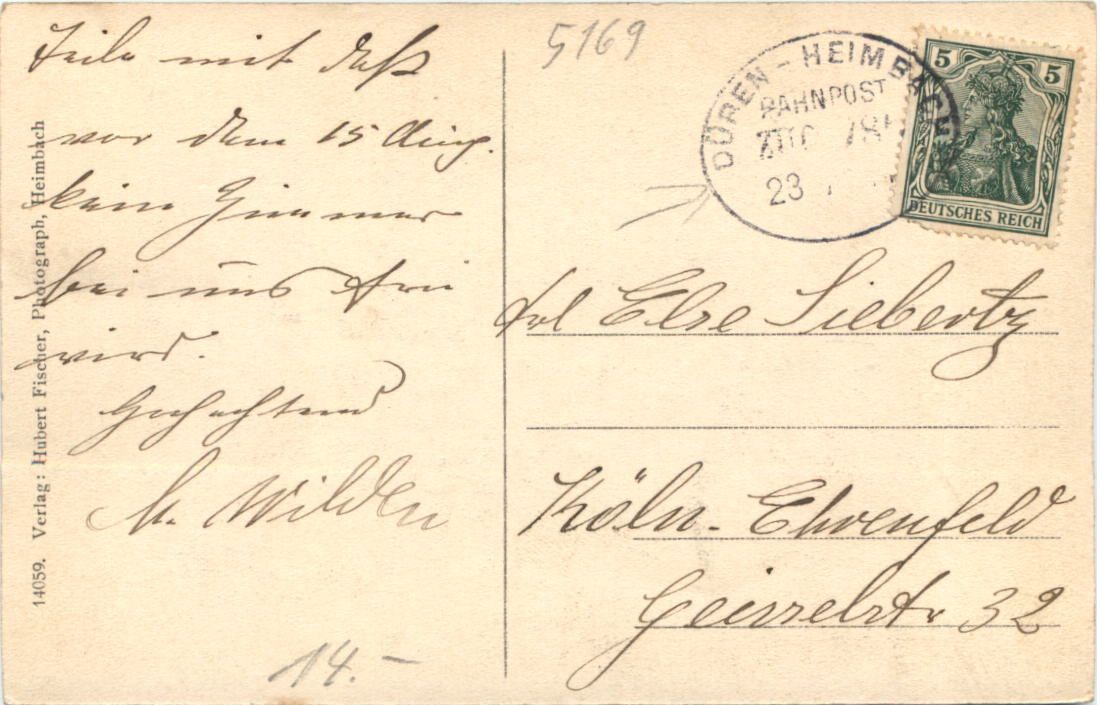 Teile mit daß
vor dem 15 Aug.
kein Zimmer
bei uns frei
wird.
Hochachtend
M. Wilden
14.-
14059. Verlag: Hubert Fischer, Photograph, Heimbach
5169
DÜREN - HEIMBACH
BAHNPOST
ZUG 78
23
5 5
DEUTSCHES REICH
Frl Else Siebertz
Köln-Ehrenfeld
Geisselstr 32